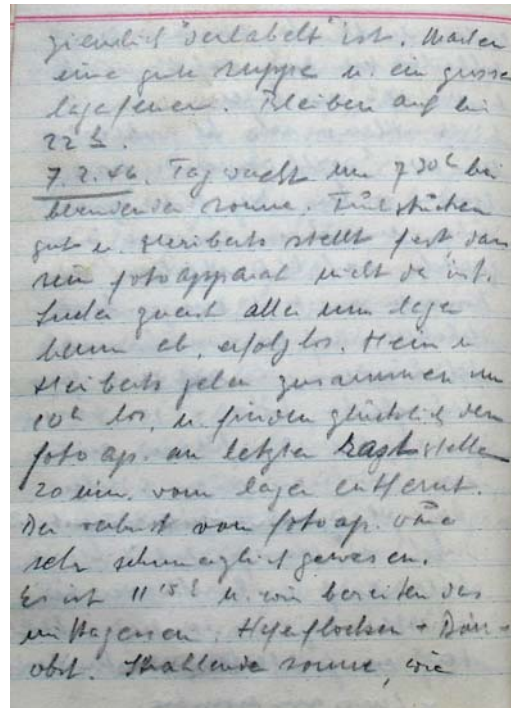 ziemlich "verlabelt" ist. Machen
eine gute suppe u. ein grosses
lagerfeuer. Bleiben auf bis
22 h.
7.2.46. Tagwacht um 7 30 h bei
blendender sonne. Frühstücken
gut u. Heriberts stellt fest dass
sein fotoapparat nicht da ist.
Suche zuerst alles um lager
herum ab, erfolglos. Hein u
Heriberts gehen zusammen um
10h los, u. finden glücklich den
foto ap. an letzten Raststelle
20 min. vom lager entfernt.
Der verlust vom fotoap. wäre
sehr schmerzlich gewesen.
Es ist 11 15 h u. wir bereiten das
mittagessen. Haferflocken + Dürr-
obst. Strahlende sonne, wie